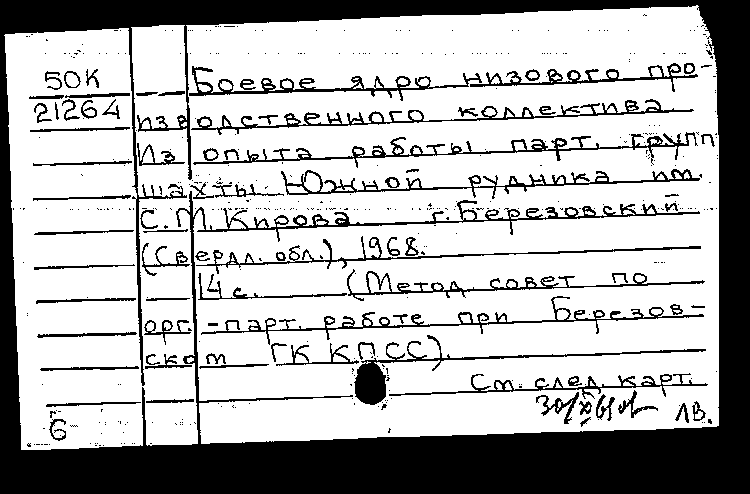 50К Боевое ядро низового про-
21264 изводственного коллектива.
Из опыта работы парт. групп
шахты Южной рудника им.
С.М. Кирова. г. Березовский
(Свердл. обл.), 1968.
14 с. (Метод. совет по
орг.-парт. работе при Березов-
ском ГК КПСС).
См. след. карт.
ЛВ.
б